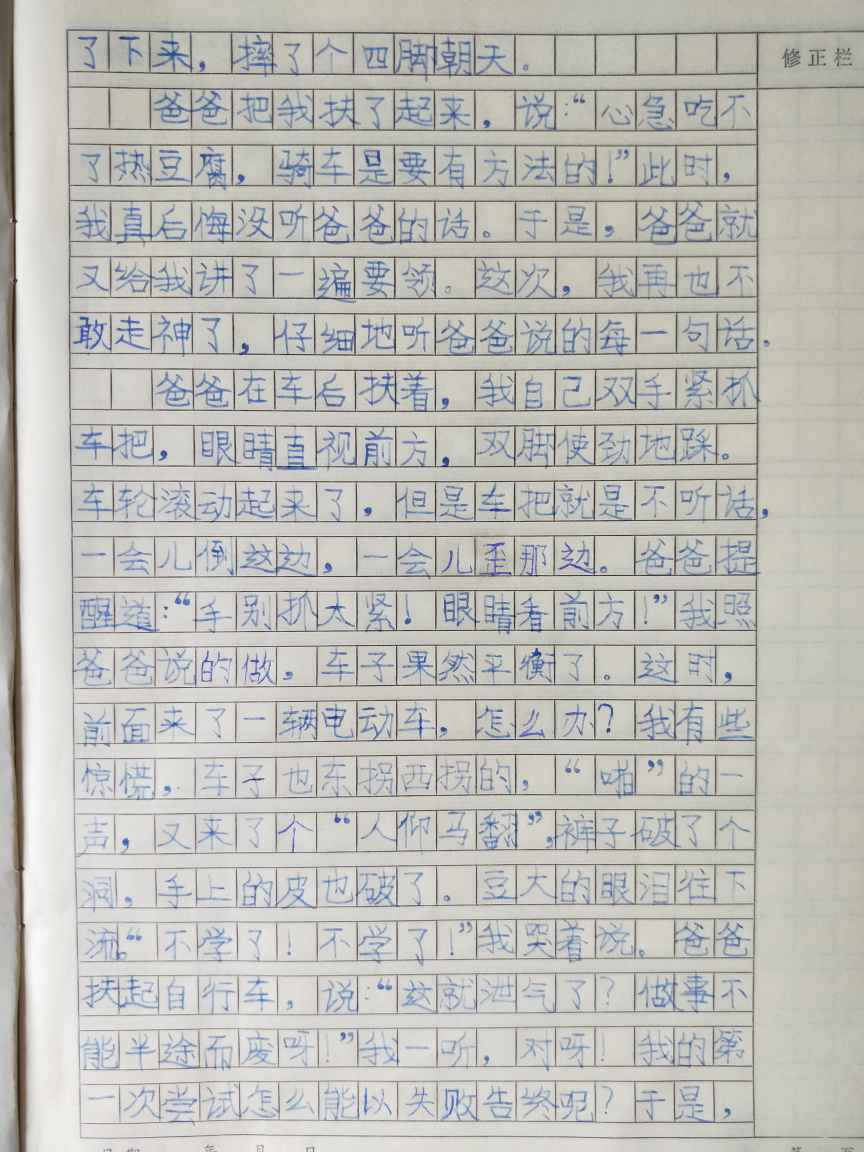 了下来，摔了个四脚朝天。
修正栏
爸爸把我扶了起来，说：“心急吃不
了热豆腐，骑车是要有方法的！”此时，
我真后悔没听爸爸的话。于是，爸爸就
又给我讲了一遍要领。这次，我再也不
敢走神了，仔细地听爸爸说的每一句话。
爸爸在车后扶着，我自己双手紧抓
车把，眼睛直视前方，双脚使劲地踩。
车轮滚动起来了，但是车把就是不听话，
一会儿倒这边，一会儿歪那边。爸爸提
醒道：“手别抓太紧！眼睛看前方！”我照
爸爸说的做，车子果然平衡了。这时，
前面来了一辆电动车，怎么办？我有些
惊慌，车子也东拐西拐的，“啪”的一
声，又来了个“人仰马翻”，裤子破了个
洞，手上的皮也破了。豆大的眼泪往下
流。“不学了！不学了！”我哭着说。爸爸
扶起自行车，说：“这就泄气了？做事不
能半途而废呀！”我一听，对呀！我的第
一次尝试怎么能以失败告终呢？于是，